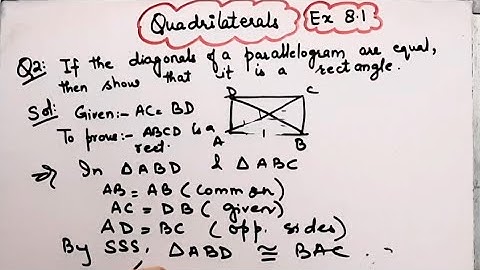 Quadrilaterals Ex 8.1
Q2: If the diagonals of a parallelogram are equal,
then show that it is a rectangle.
Sol: Given:- AC= BD
To prove:- ABCD is a
rect.
D C
A B
In △ABD & △ABC
AB = AB (common)
AC = DB (given)
AD = BC (opp. sides)
By SSS, △ABD ≅ BAC